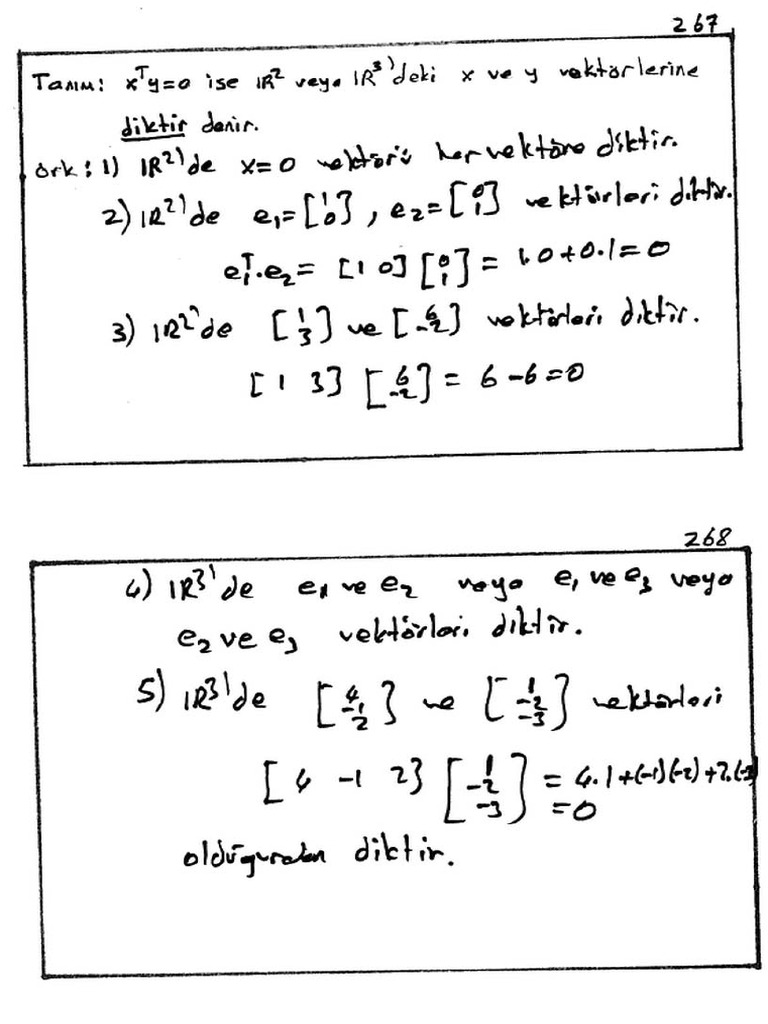 267
Tanım: xᵀy=0 ise IR² veya IR³'deki x ve y vektörlerine
diktir denir.
örk: 1) IR²'de x=0 vektörü her vektöre diktir.
2) IR²'de e₁=[1 0], e₂=[0 1] vektörleri diktir.
e₁ᵀ.e₂= [1 0] [0 1] = 1.0+0.1=0
3) IR²'de [1 3] ve [6 -2] vektörleri diktir.
[1 3] [6 -2] = 6-6=0
268
4) IR³'de e₁ ve e₂ veya e₁ ve e₃ veya
e₂ ve e₃ vektörleri diktir.
5) IR³'de [4 -1 2] ve [1 -2 -3] vektörleri
[4 -1 2] [1 -2 -3] = 4.1+(-1)(-2)+2.(-3)
=0
olduğundan diktir.